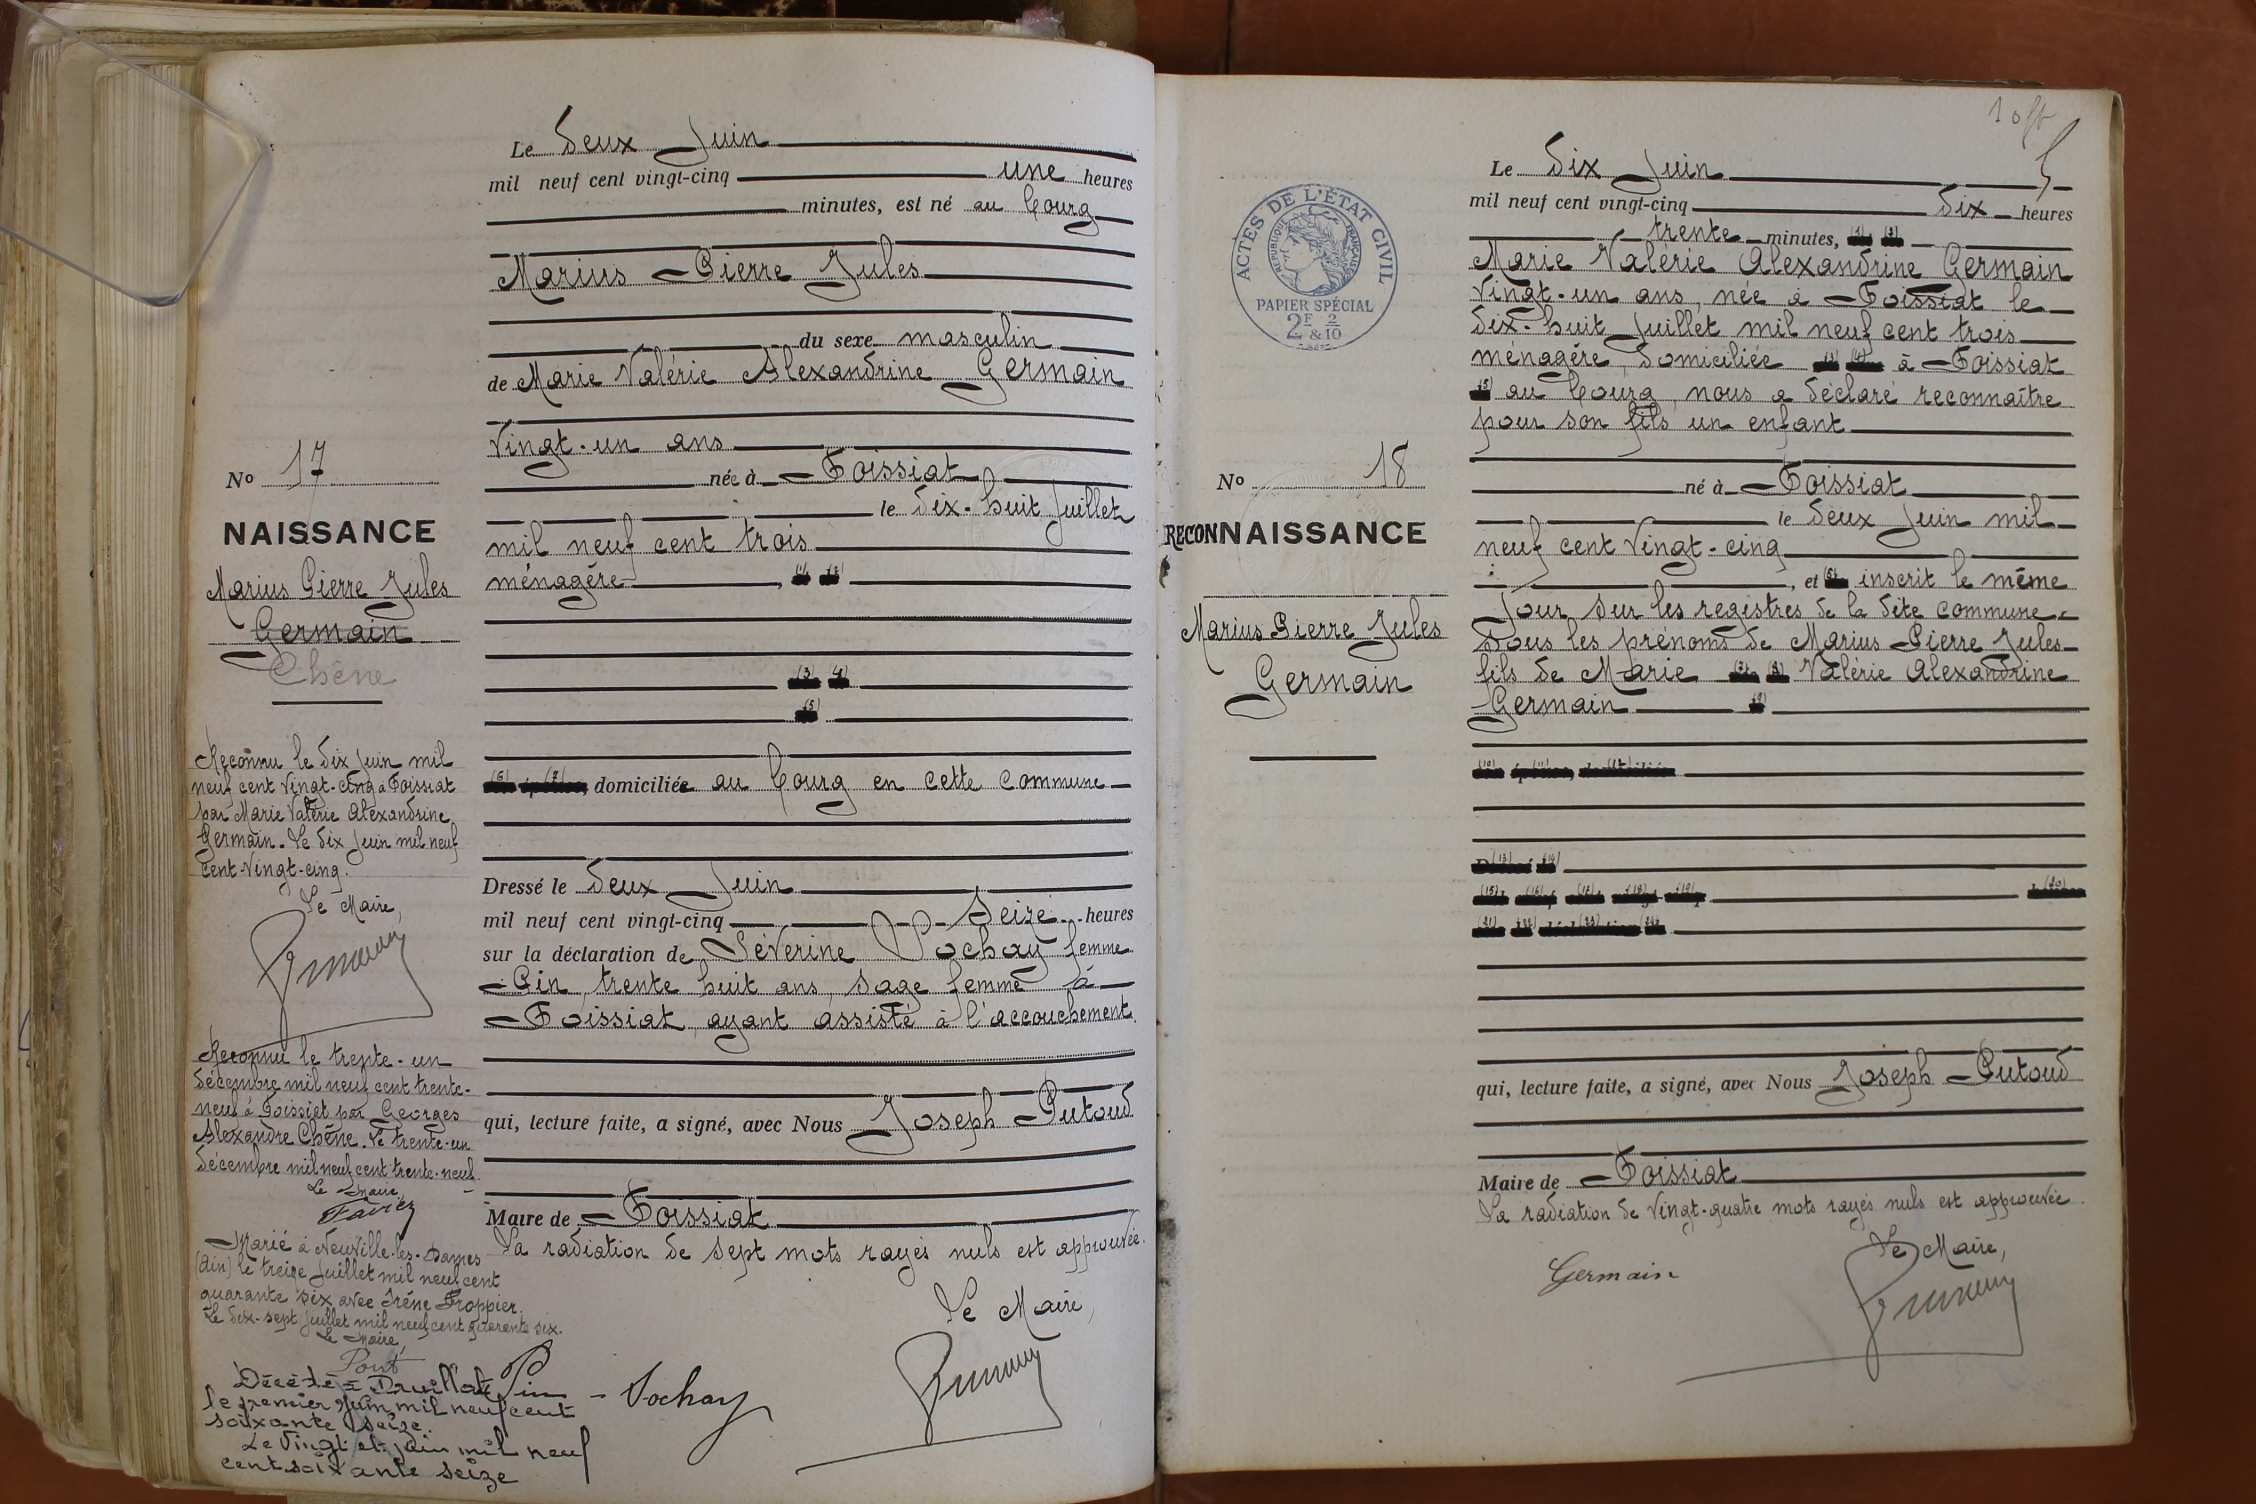 Le deux Juin
mil neuf cent vingt-cinq une heures
minutes, est né au bourg
Marius Pierre Jules
du sexe masculin
de Marie Valérie Alexandrine Germain
Vingt-un ans
née à Foissiat
le dix-huit Juillet
mil neuf cent trois
ménagère, (1) (2)
(3) (4)
(5)
(6) (7) domiciliée au bourg en cette commune
Dressé le deux Juin
mil neuf cent vingt-cinq Seize heures
sur la déclaration de Séverine Vochay femme
Pin, trente huit ans, sage femme à
Foissiat, ayant assisté à l'accouchement
qui, lecture faite, a signé, avec Nous Joseph Putoud
Maire de Foissiat
La radiation de sept mots rayés nuls est approuvée.
Le Maire,
Pin - Vochay
No 17
NAISSANCE
Marius Pierre Jules
Germain
Chêne
Reconnu le dix Juin mil
neuf cent Vingt-cinq à Foissiat
par Marie Valérie Alexandrine
Germain. Le dix Juin mil neuf
cent-Vingt-cinq.
Le Maire,
Reconnu le trente-un
décembre mil neuf cent trente-
neuf à Foissiat par Georges
Alexandre Chêne. Le trente-un
décembre mil neuf cent trente-neuf.
Le Maire,
Marié à Neuville-les-Dames
(Ain) le treize Juillet mil neuf cent
quarante six avec Irène Froppier.
Le dix-sept Juillet mil neuf cent quarante six.
Le Maire,
Pont
Décédé à Druillat
le premier juin mil neuf cent
soixante seize.
Le Vingt et juin mil neuf
cent soixante seize
Le dix Juin
mil neuf cent vingt-cinq dix heures
trente minutes, (1) (2)
Marie Valérie Alexandrine Germain
Vingt-un ans, née à Foissiat le
dix-huit Juillet mil neuf cent trois
ménagère, domiciliée (3) (4) à Foissiat
(5) au bourg, nous a déclaré reconnaître
pour son fils un enfant
né à Foissiat
le deux Juin mil
neuf cent Vingt-cinq
, et (6) inscrit le même
Jour sur les registres de la dite commune
sous les prénoms de Marius Pierre Jules
fils de Marie (7) (8) Valérie Alexandrine
Germain (9)
(10)
(13) (14)
(15) (16) (17) (18) (19) (20)
(21) (22) (23) (24)
qui, lecture faite, a signé, avec Nous Joseph Putoud
Maire de Foissiat
La radiation de Vingt-quatre mots rayés nuls est approuvée.
Le Maire,
Germain
ACTES DE L'ÉTAT CIVIL
RÉPUBLIQUE FRANÇAISE
PAPIER SPÉCIAL
2F 2
& 10
No 18
RECONNAISSANCE
Marius Pierre Jules
Germain